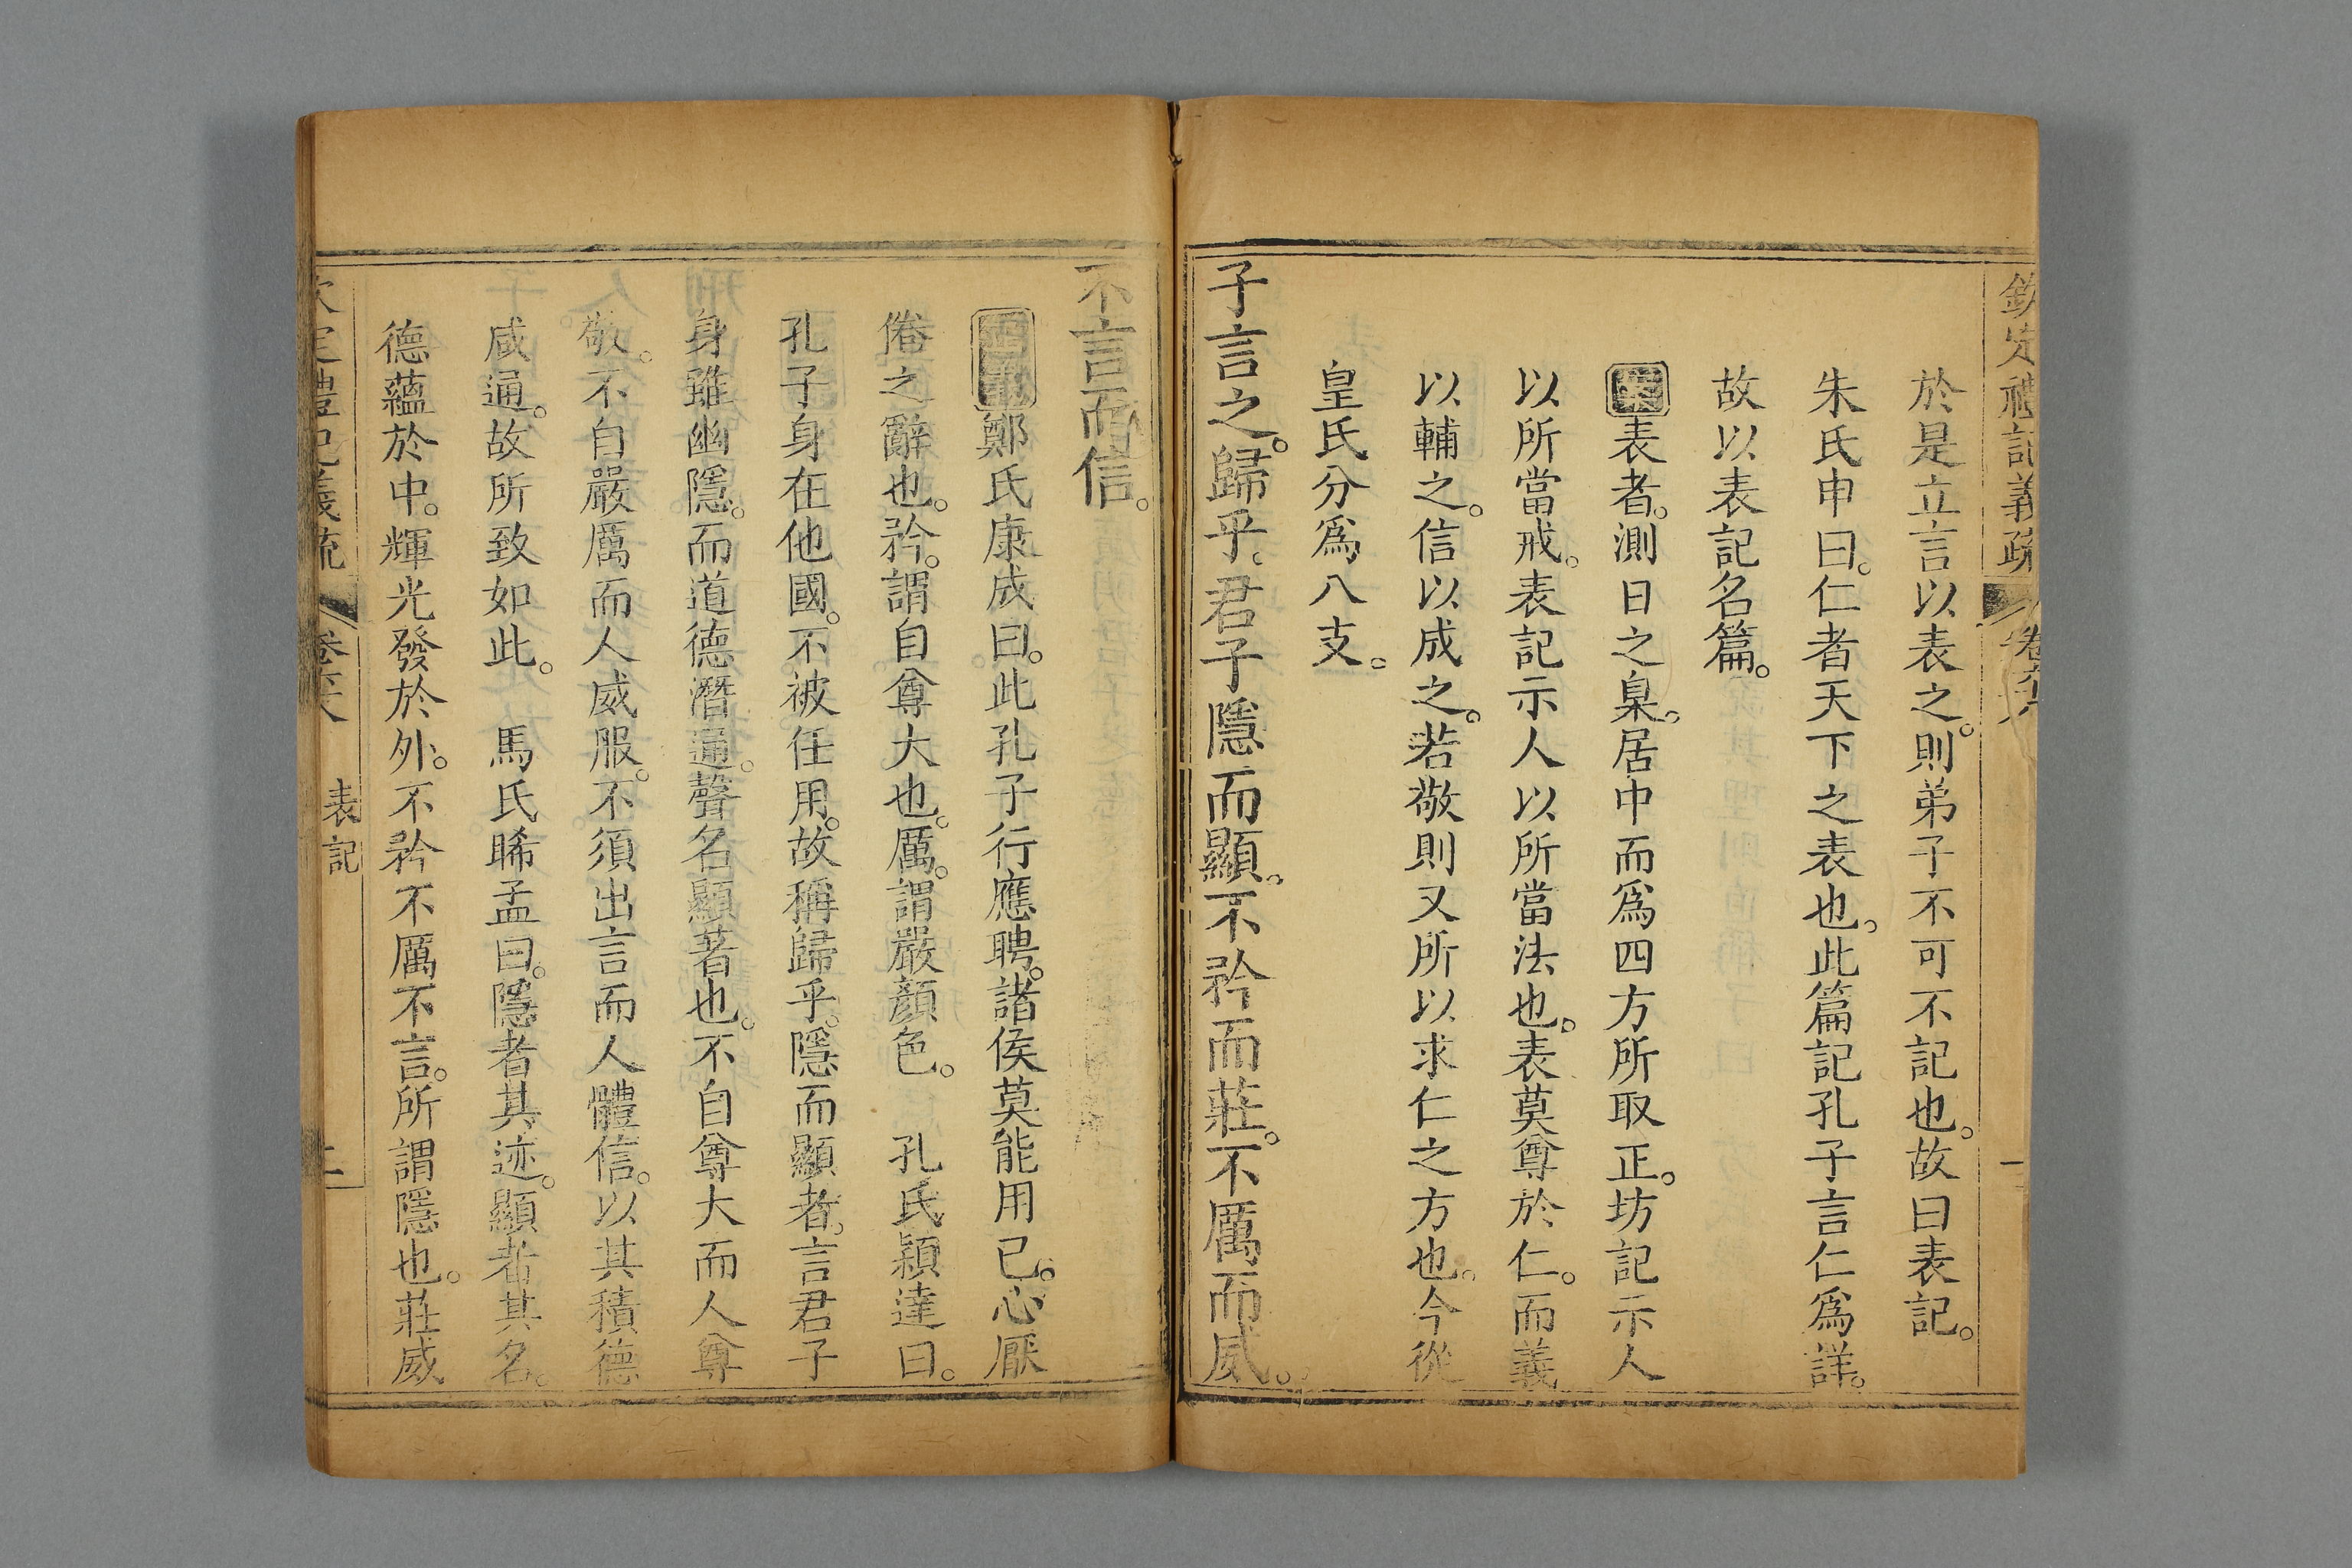 欽定禮記義疏 卷六八 一
於是立言以表之。則弟子不可不記也。故曰表記。
朱氏申曰。仁者天下之表也。此篇記孔子言仁爲詳。
故以表記名篇。
案表者。測日之臬。居中而爲四方所取正。坊記示人
以所當戒。表記示人以所當法也。表莫尊於仁。而義
以輔之。信以成之。若敬則又所以求仁之方也。今從
皇氏分爲八支。
子言之。歸乎。君子隱而顯。不矜而莊。不厲而威。
不言而信。
鄭氏康成曰。此孔子行應聘。諸侯莫能用己。心厭
倦之辭也。矜。謂自尊大也。厲。謂嚴顏色。 孔氏穎達曰。
孔子身在他國。不被任用。故稱歸乎。隱而顯者。言君子
身雖幽隱。而道德潛通。聲名顯著也。不自尊大而人尊
敬。不自嚴厲而人威服。不須出言而人體信。以其積德
咸通。故所致如此。 馬氏睎孟曰。隱者其迹。顯者其名。
德蘊於中。輝光發於外。不矜不厲不言。所謂隱也。莊威
欽定禮記義疏 卷六八 表記 二